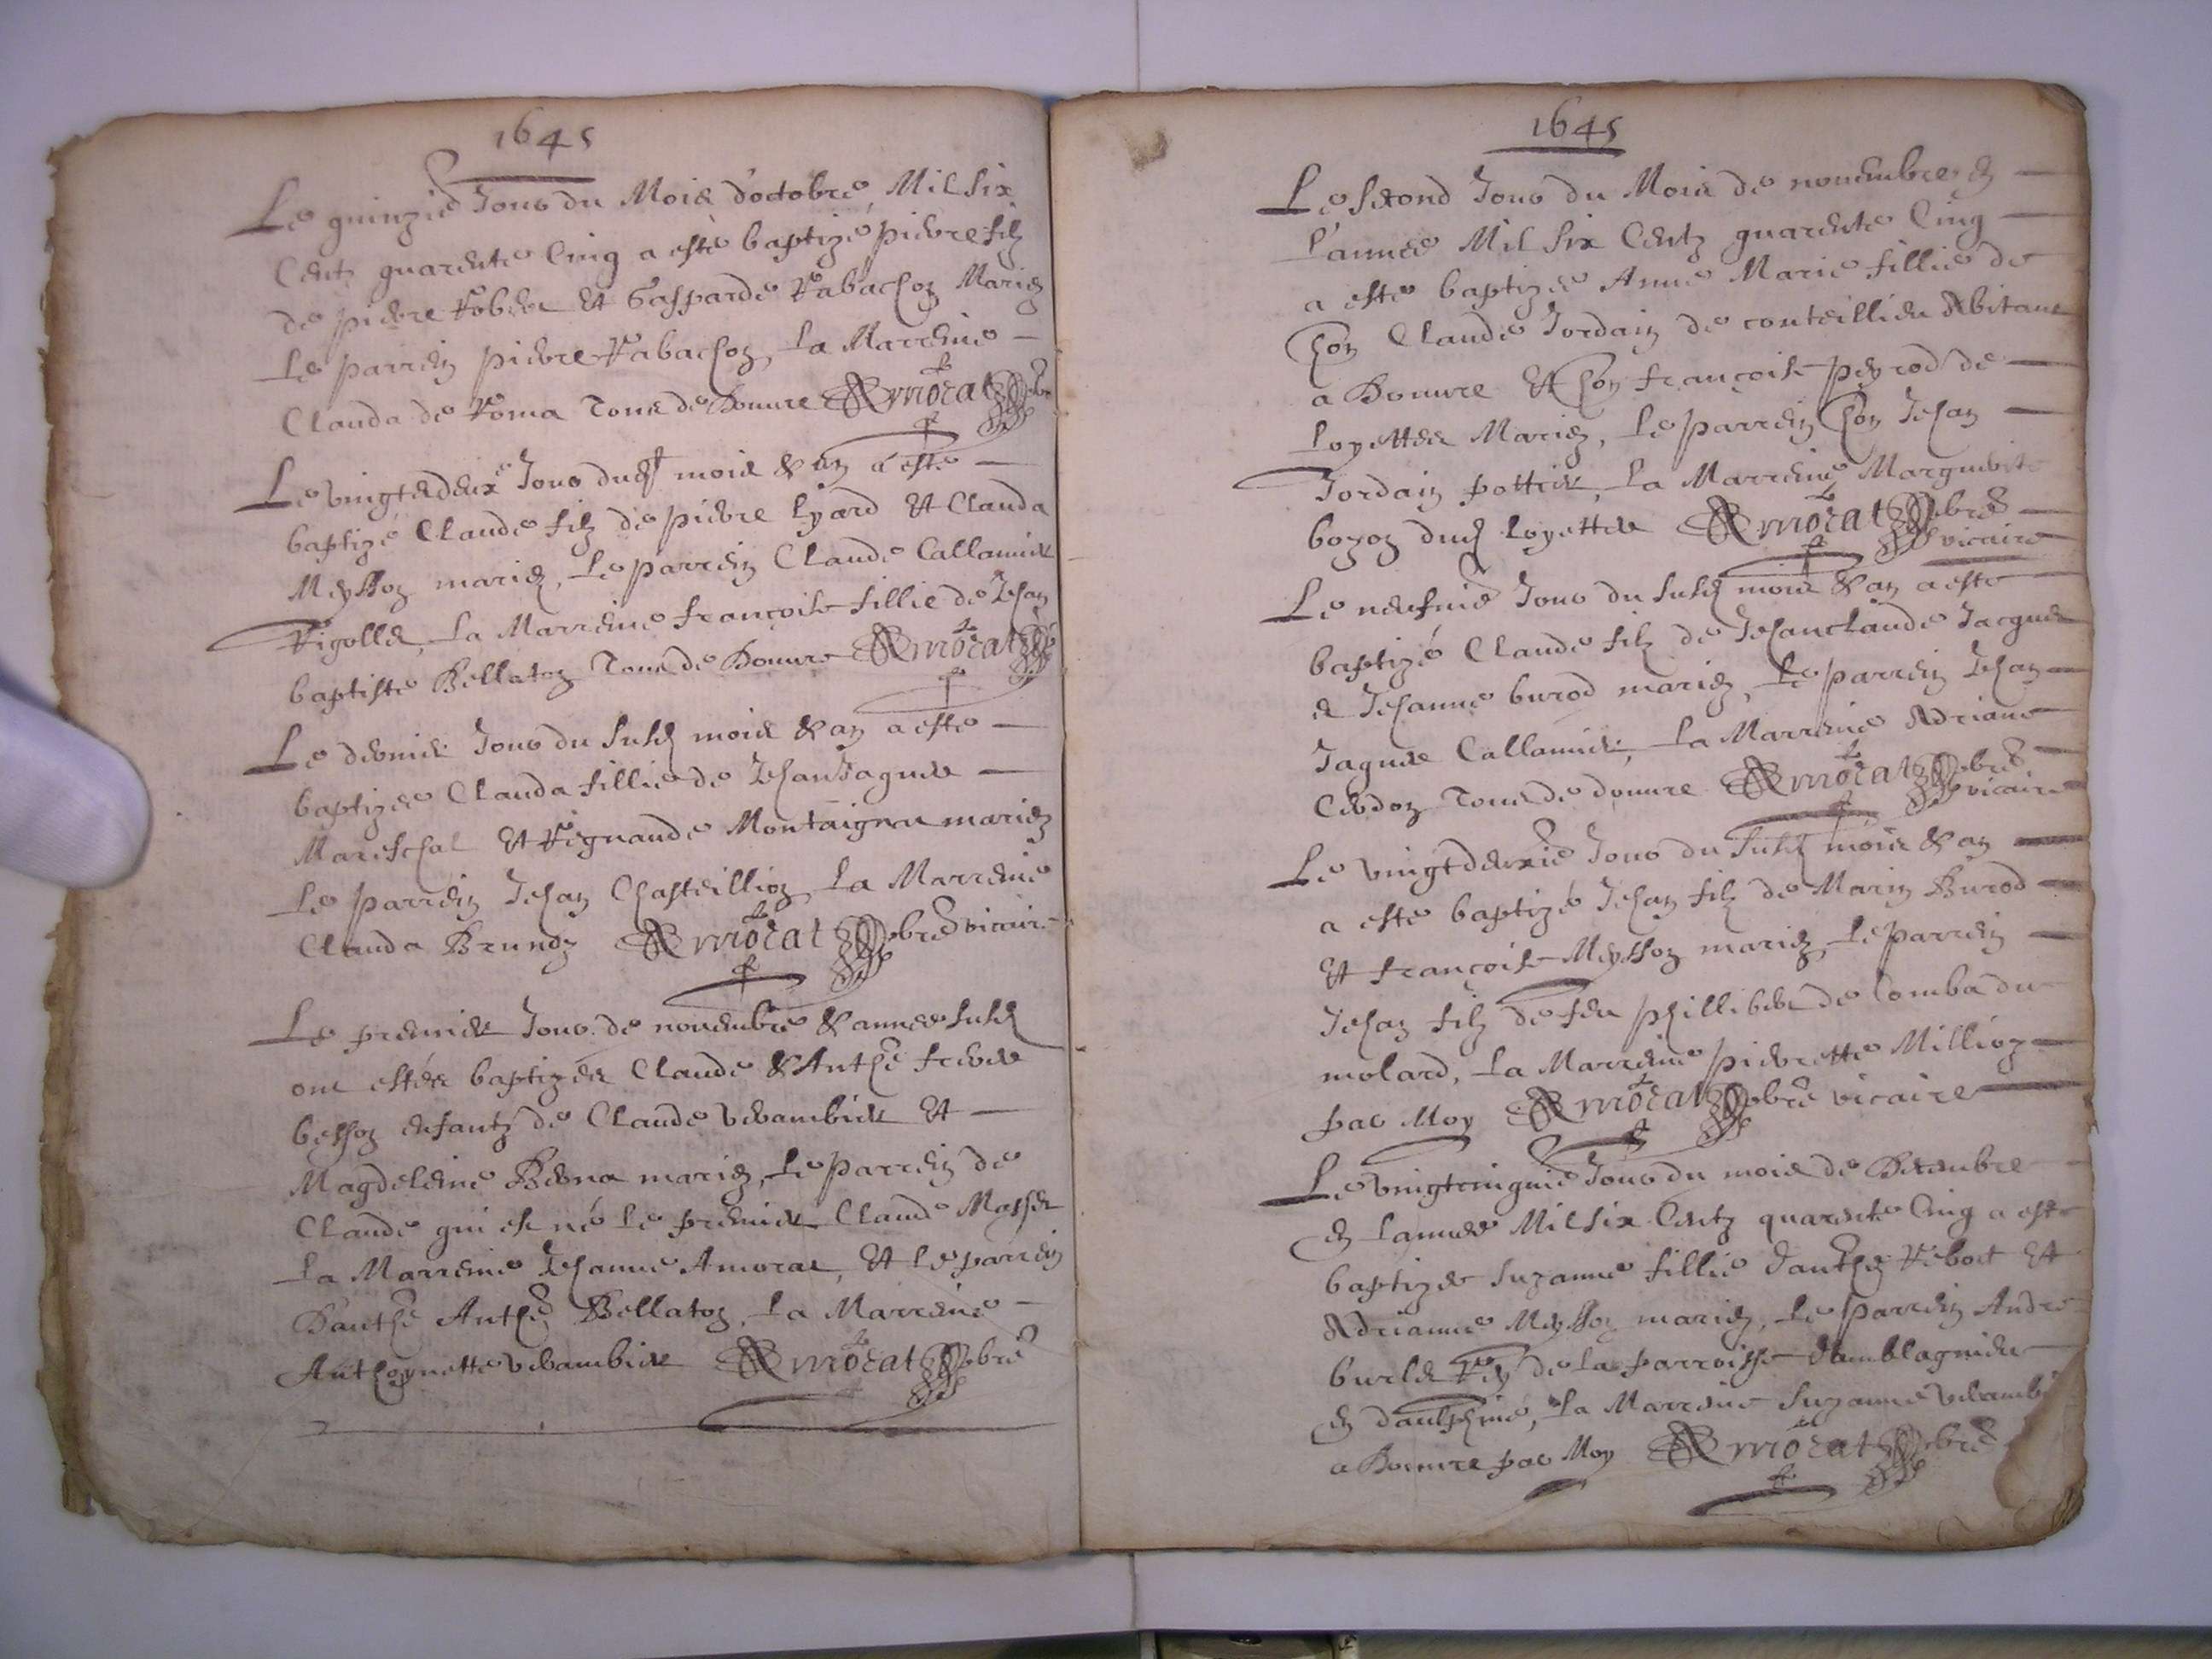 1645
Le quinzie Jour du Mois d'octobre, Mil six
Centz quarente Cinq a esté baptizé pierre filz
de pierre Robin et Gasparde Rabachon Mariez
Le parrein pierre Rabachon, La Marreine
Clauda de Roma Tous de Donure Amorat pbre
Le vingtedeuxe Jour dudt mois & an a esté
baptizé Claude filz de pierre Lyard et Clauda
Meysson mariez, Le parrein Claude Callamier
Rigollet, La Marreine françoise fillie de Jehan
baptiste Bellaton Tous de Donure Amorat
Le dernier Jour du susd mois & an a esté
baptizée Clauda fillie de Jehan Jaques
Mareschal et Regnaude Montaigneu mariez
Le parrein Jehan Chasteillion La Marreine
Clauda Brundz Amorat pbre vicaire
Le premier Jour de novembre & annee susd
ont estés baptizés Claude & Anthe freres
besson enfantz de Claude Verambier et
Magdeleine Berna mariez, Le parrein de
Claude qui est né Le premier Claude Masset
La Marreine Jehanne Amorat, et Le parrein
D'anthe Anthe Bellaton, La Marreine
Anthoynette Verambier Amorat pbre
1645
Le second Jour du Mois de novembre en
L'annee Mil six Centz quarente Cinq
a esté baptizée Anne Marie fillie de
hon Claude Jordain de conteillieu Abitant
a Donure et hon françoise peyrod de
Loyettes Mariez, Le parrein hon Jehan
Jordain pottier, La Marreine Marguerite
bozon dud Loyettes Amorat pbre
vicaire
Le neufvie Jour du susd mois & an a esté
baptizé Claude filz de Jehanclaude Jacques
et Jehanne burod mariez, Le parrein Jehan
Jaques Callamier, La Marreine Adriane
Cerdon Tous de donure Amorat pbre
vicaire
Le vingtdeuxie Jour du susd mois & an
a esté baptizé Jehan filz de Marin Burod
et françoise Meysson mariez, Le parrein
Jehan filz de feu phillibert de Comba du
molard, La Marreine pierrette Million
par Moy Amorat pbre vicaire
Le vingtcinquie Jour du mois de Decembre
en Lannee Mil six Centz quarente Cinq a esté
baptizée Suzanne fillie danthe Reboet et
Adrianne Meysson mariez, Le parrein André
burlet de La parroisse damblagnieu
en daulphiné, La Marreine Suzanne
a Donure par Moy Amorat pbre